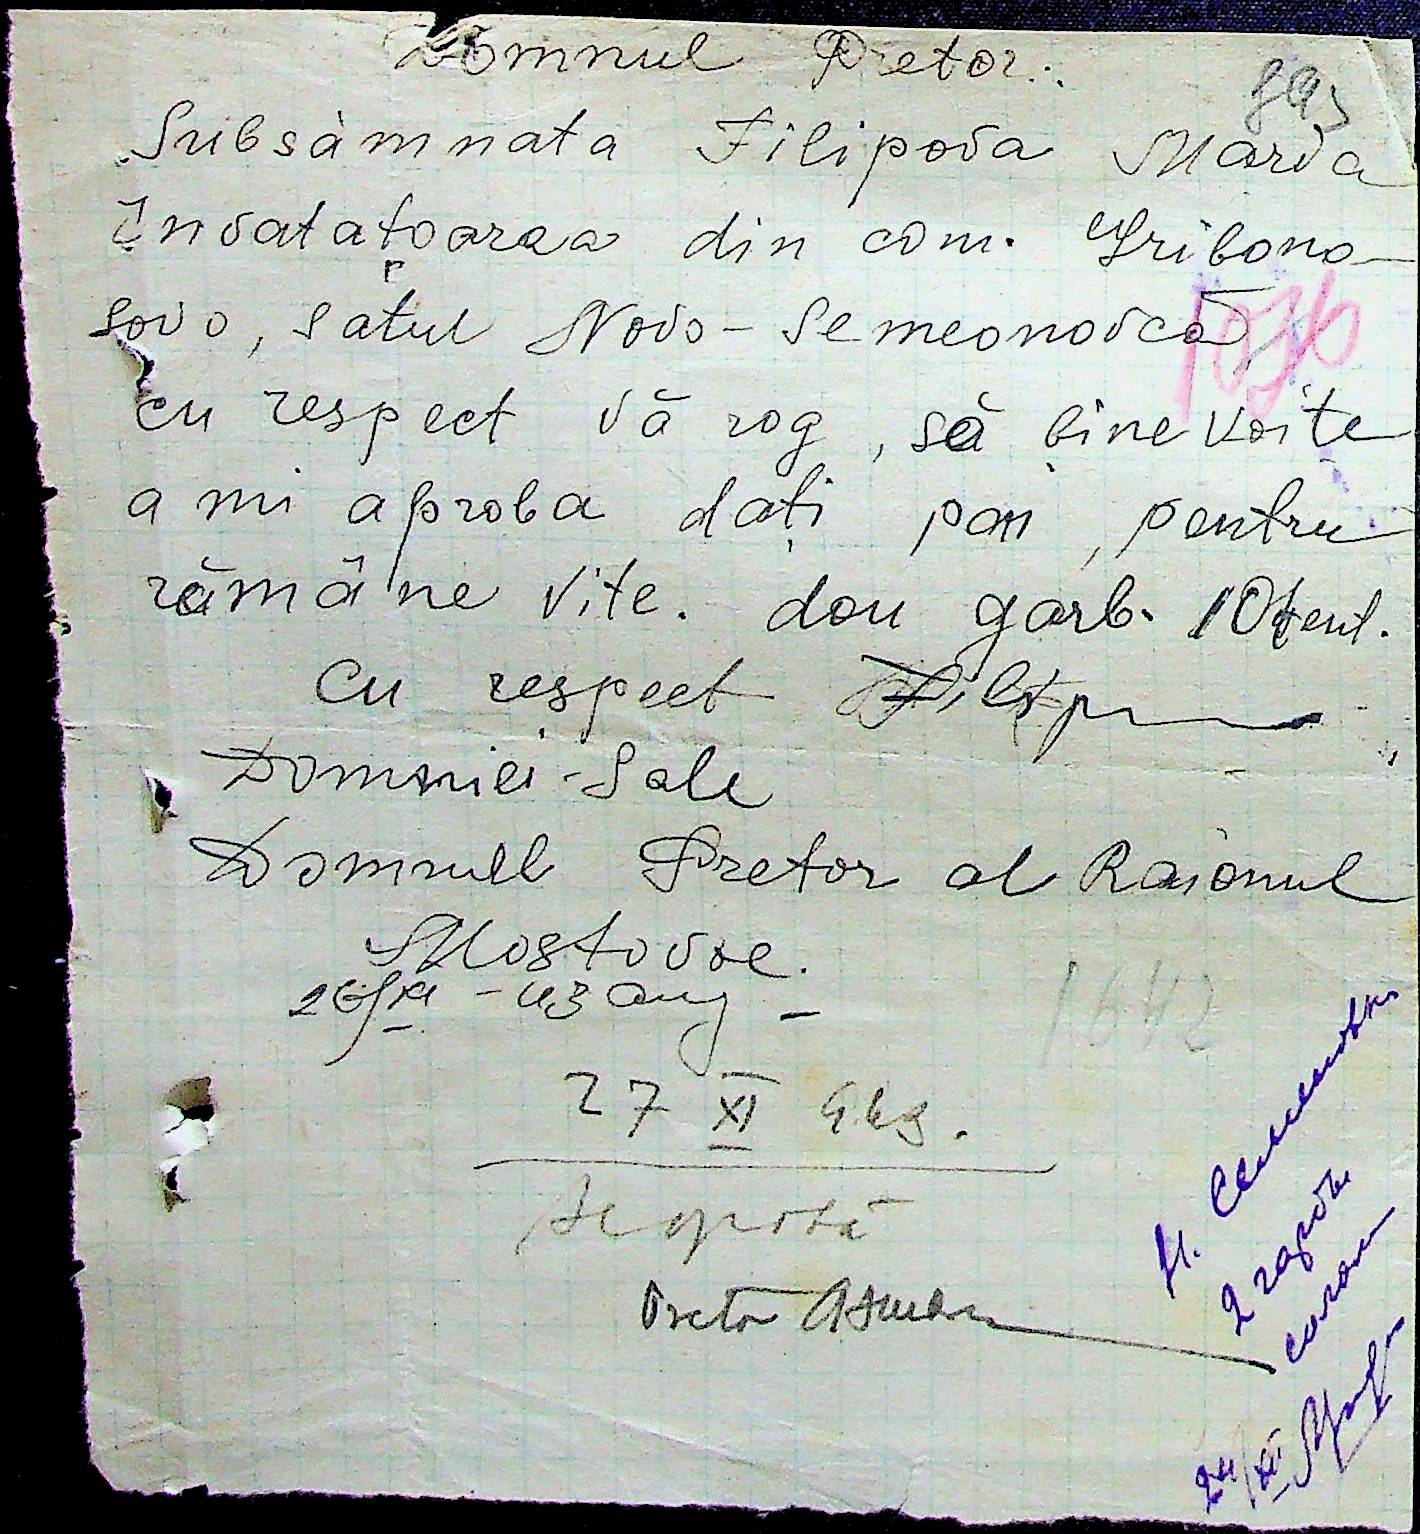 Domnul Pretor.
893
Subsàmnata Filipova Marva
Învatațoaraa din com. Gribono-
sovo, satul Novo-Semeonovca
1076
cu respect vă rog, să binevoite
a mi aproba dați pan, pentru
rămâne vite. dou garb. 10
Cu respect Filip
Domniei-Sale
Domnull Pretor al Raionul
Mostovoe.
26/XI - 43 aug -
1642
27 XI 943.
Se aprobă
Pretor
Н. Семеновка
2 гарбы
соломы
24/XI